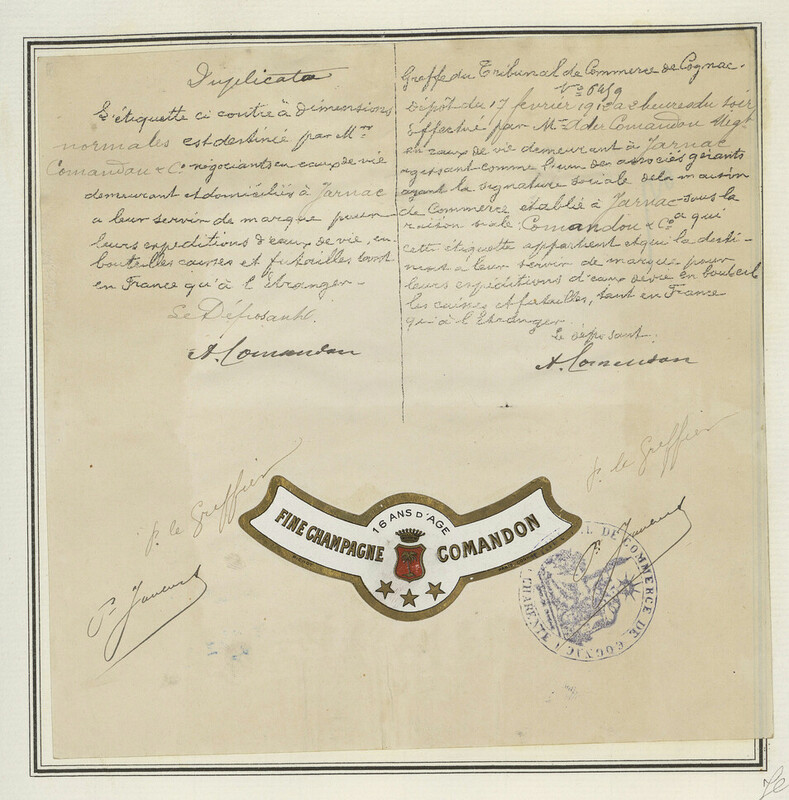 Duplicata
L'étiquette ci contre à dimensions
normales est destinée par Mrs
Comandon & Co négociants en eaux de vie
demeurant et domiciliés à Jarnac
a leur servir de marque pour
leurs expéditions d'eaux de vie, en
bouteilles caisses et futailles tant
en France qu'à l'étranger-
Le Déposant.
A. Comandon
Greffe du Tribunal de Commerce de Cognac.
No
Dépôt du 17 février à 2 heures du soir
effectué par Mr Comandon Negt
en eaux de vie demeurant à Jarnac
agissant comme l'un des associés gérants
ayant la signature sociale de la maison
de Commerce établie à Jarnac sous la
raison sociale: Comandon & Co à qui
cette étiquette appartient et qui la desti-
nent à leur servir de marque pour
leurs expéditions d'eaux de vie en bouteil-
les caisses et futailles, tant en France
qu'à l'Etranger
Le déposant.
A. Comandon
p. le Greffier
p. le Greffier
16 ANS D'AGE
FINE CHAMPAGNE COMANDON
DE COMMERCE DE COGNAC
(CHARENTE)